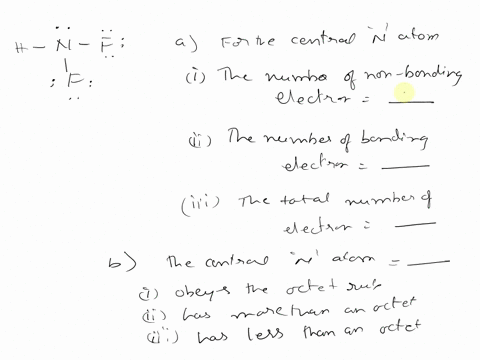 H - N - F :
: F :
a) For the central 'N' atom
(i) The numbe of non-bonding
electron = ___
(ii) The number of bonding
electron = ___
(iii) The total number of
electron = ___
b) The central 'N' atom = ___
(i) obeys the octet rule
(ii) has more than an octet
(iii) has less than an octet